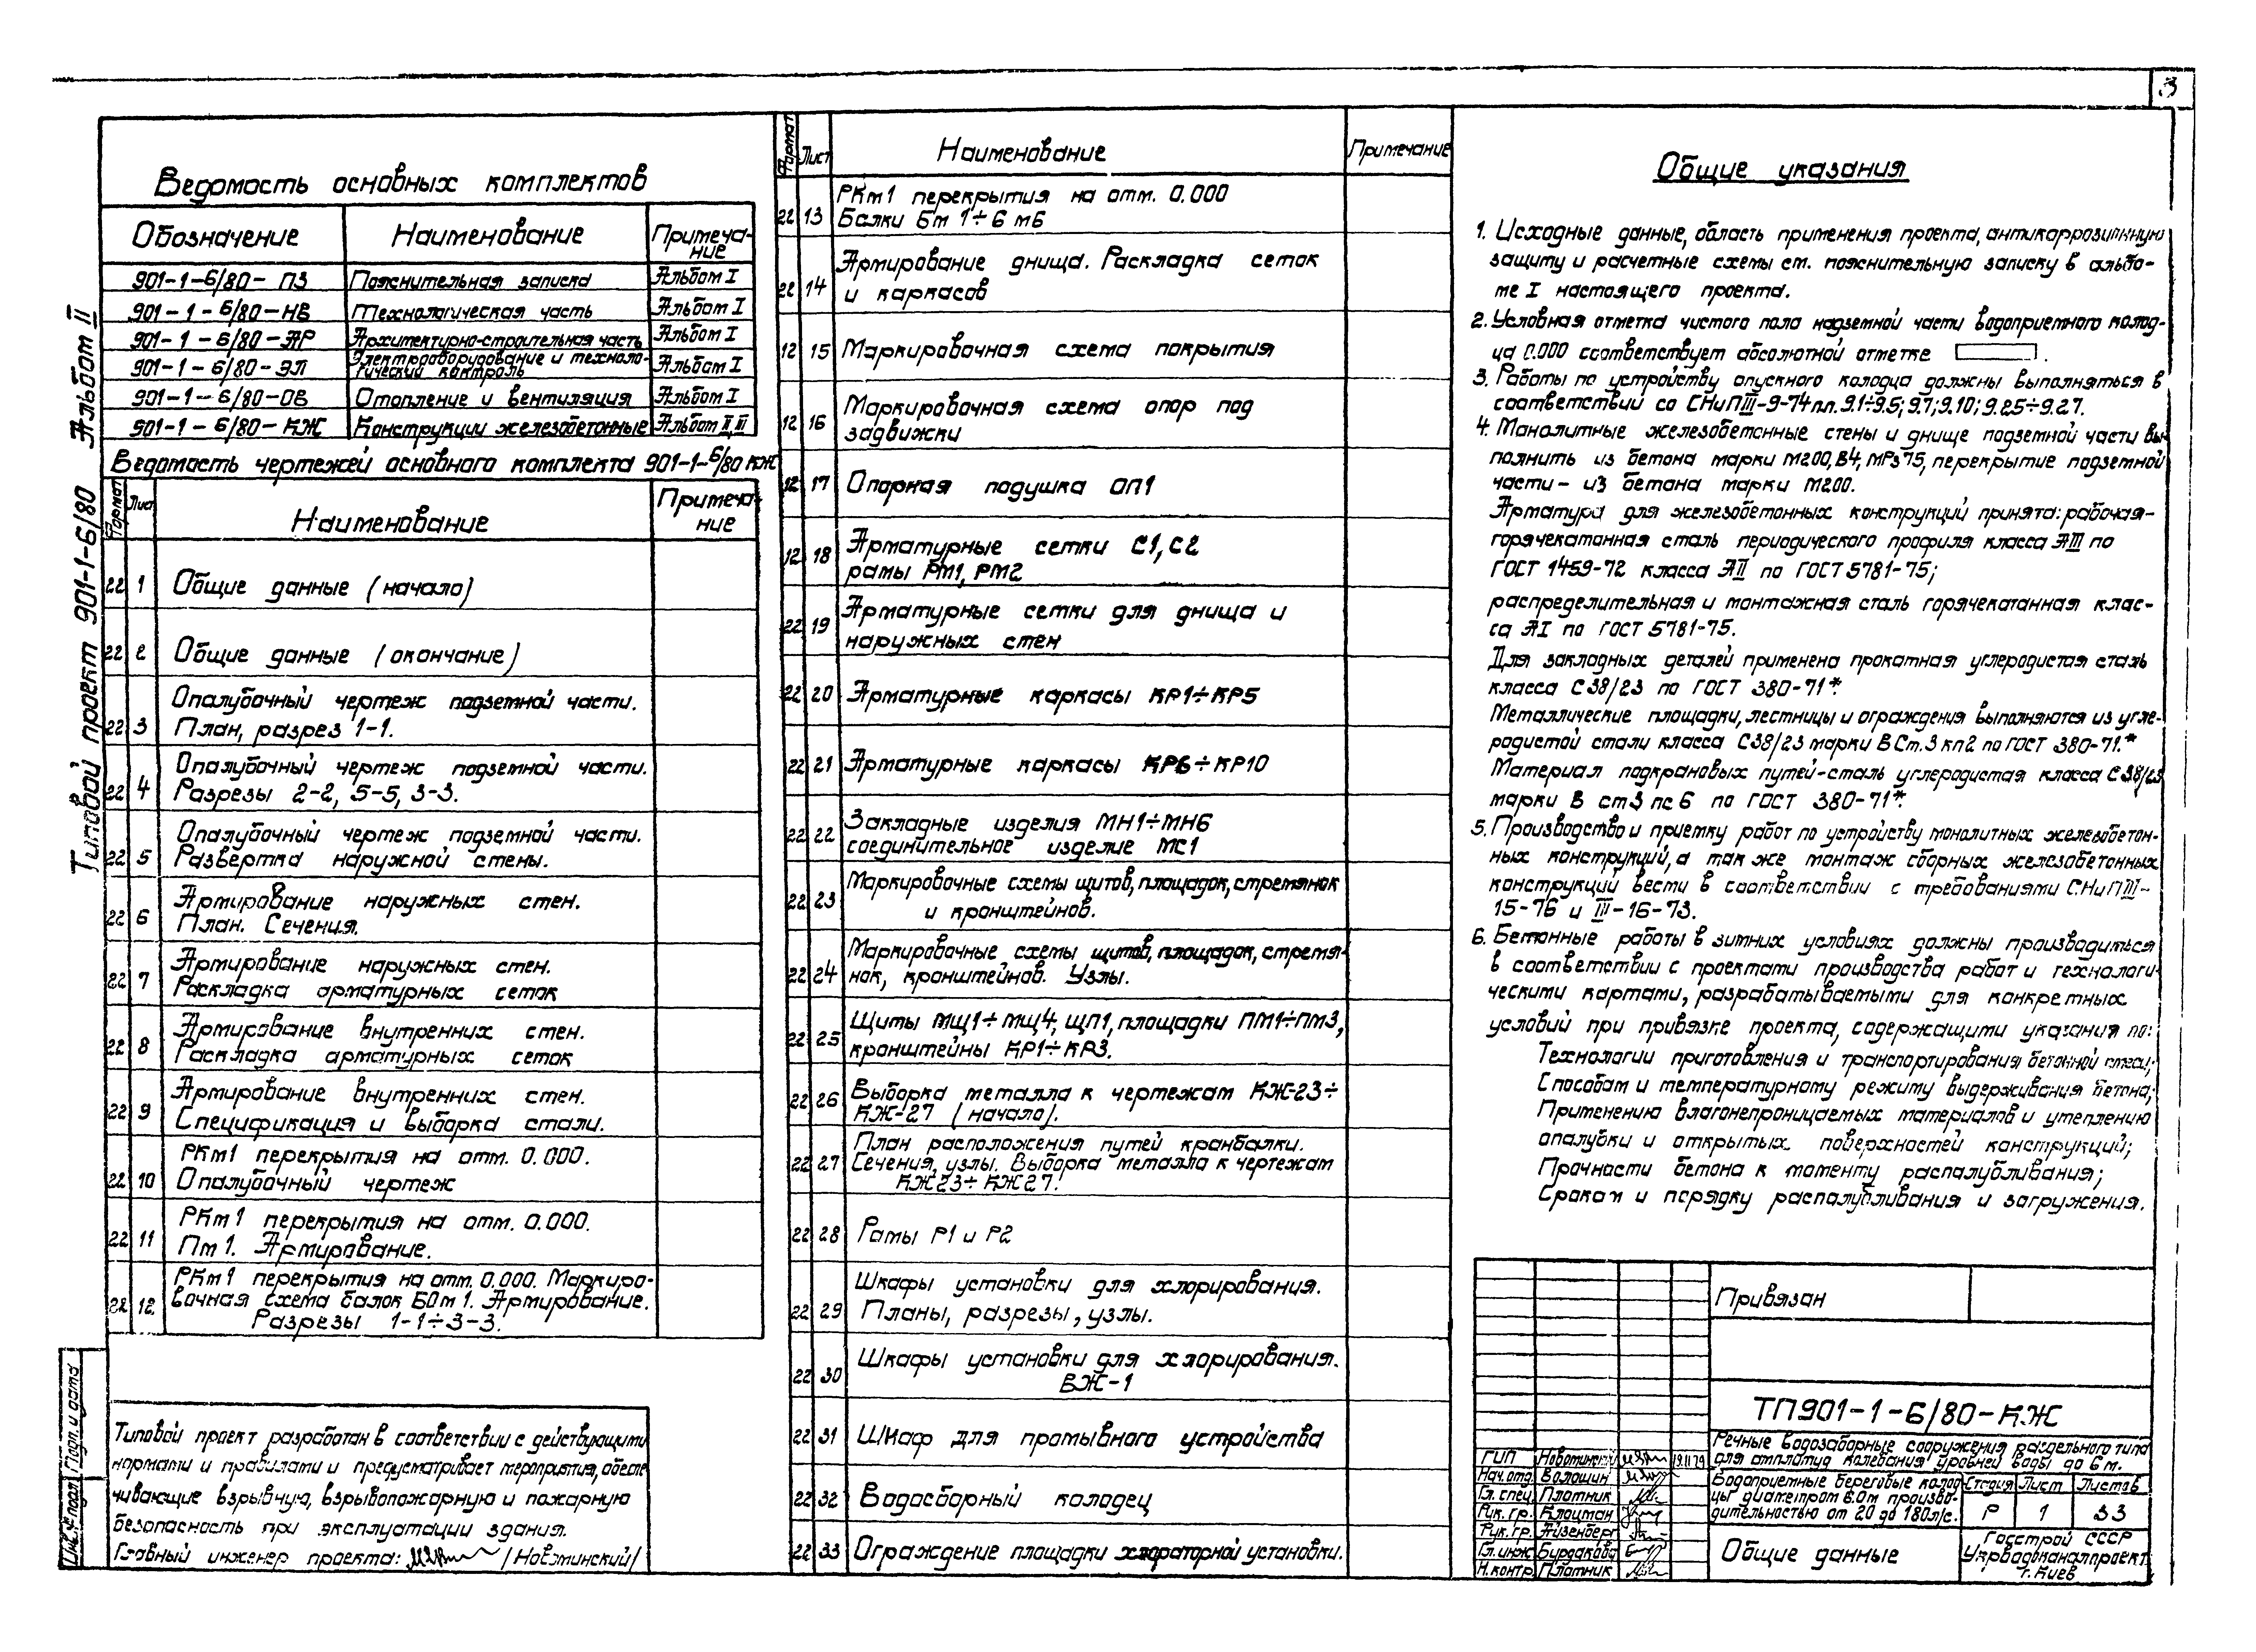 3
Типовой проект 901-1-6/80 Альбом II
Ведомость основных комплектов
Обозначение Наименование Примеча-
ние
901-1-6/80-ПЗ Пояснительная записка Альбом I
901-1-6/80-НВ Технологическая часть Альбом I
901-1-6/80-АР Архитектурно-строительная часть Альбом I
901-1-6/80-ЭЛ Электрооборудование и техноло-
гический контроль Альбом I
901-1-6/80-ОВ Отопление и вентиляция Альбом I
901-1-6/80-КЖ Конструкции железобетонные Альбом II, III
Ведомость чертежей основного комплекта 901-1-6/80 КЖ
Формат Лист Наименование Примеча-
ние
22 1 Общие данные (начало)
22 2 Общие данные (окончание)
Опалубочный чертеж подземной части.
22 3 План, разрез 1-1.
Опалубочный чертеж подземной части.
22 4 Разрезы 2-2, 5-5, 3-3.
Опалубочный чертеж подземной части.
22 5 Развертка наружной стены.
Армирование наружных стен.
22 6 План. Сечения.
Армирование наружных стен.
22 7 Раскладка арматурных сеток
Армирование внутренних стен.
22 8 Раскладка арматурных сеток
Армирование внутренних стен.
22 9 Спецификация и выборка стали.
РКм1 перекрытия на отм. 0.000.
22 10 Опалубочный чертеж
РКм1 перекрытия на отм. 0.000.
22 11 Пм1. Армирование.
РКм1 перекрытия на отм. 0.000. Маркиро-
22 12 вочная схема балок БОм1. Армирование.
Разрезы 1-1÷3-3.
Типовой проект разработан в соответствии с действующими
нормами и правилами и предусматривает мероприятия, обеспе-
чивающие взрывную, взрывопожарную и пожарную
безопасность при эксплуатации здания.
Главный инженер проекта: /Новоминский/
Инв. № подл. Подп. и дата
Формат Лист Наименование Примечание
РКм1 перекрытия на отм. 0.000
22 13 Балки Бм 1÷6 м6
Армирование днища. Раскладка сеток
22 14 и каркасов
12 15 Маркировочная схема покрытия
Маркировочная схема опор под
12 16 задвижки
12 17 Опорная подушка ОП1
Арматурные сетки С1, С2
12 18 рамы РМ1, РМ2
Арматурные сетки для днища и
22 19 наружных стен
22 20 Арматурные каркасы КР1÷КР5
22 21 Арматурные каркасы КР6÷КР10
Закладные изделия МН1÷МН6
22 22 соединительное изделие МС1
Маркировочные схемы щитов, площадок, стремянок
22 23 и кронштейнов.
Маркировочные схемы щитов, площадок, стремя-
22 24 нок, кронштейнов. Узлы.
Щиты МЩ1÷МЩ4, ЩП1, площадки ПМ1÷ПМ3,
22 25 кронштейны КР1÷КР3.
Выборка металла к чертежам КЖ-23÷
22 26 КЖ-27 (начало).
План расположения путей кранбалки.
22 27 Сечения, узлы. Выборка металла к чертежам
КЖ23÷КЖ27.
22 28 Рамы Р1 и Р2
Шкафы установки для хлорирования.
22 29 Планы, разрезы, узлы.
Шкафы установки для хлорирования.
22 30 ВЖ-1
22 31 Шкаф для промывного устройства
22 32 Водосборный колодец
22 33 Ограждение площадки хлораторной установки.
Общие указания
1. Исходные данные, область применения проекта, антикоррозийную
защиту и расчетные схемы см. пояснительную записку в альбо-
ме I настоящего проекта.
2. Условная отметка чистого пола надземной части водоприемного колод-
ца 0.000 соответствует абсолютной отметке .
3. Работы по устройству опускного колодца должны выполняться в
соответствии со СНиП III-9-74 пп. 9.1÷9.5; 9.7; 9.10; 9.25÷9.27.
4. Монолитные железобетонные стены и днище подземной части вы-
полнить из бетона марки М200, В4, МРз75, перекрытие подземной
части - из бетона марки М200.
Арматура для железобетонных конструкций принята: рабочая-
горячекатанная сталь периодического профиля класса АIII по
ГОСТ 1459-72 класса АII по ГОСТ 5781-75;
распределительная и монтажная сталь горячекатанная клас-
са АI по ГОСТ 5781-75.
Для закладных деталей применена прокатная углеродистая сталь
класса С38/23 по ГОСТ 380-71*.
Металлические площадки, лестницы и ограждения выполняются из угле-
родистой стали класса С38/23 марки ВСт.3 кп2 по ГОСТ 380-71.*
Материал подкрановых путей-сталь углеродистая класса С38/23
марки В ст3 пс 6 по ГОСТ 380-71*.
5. Производство и приемку работ по устройству монолитных железобетон-
ных конструкций, а так же монтаж сборных железобетонных
конструкций вести в соответствии с требованиями СНиП III-
15-76 и III-16-73.
6. Бетонные работы в зимних условиях должны производиться
в соответствии с проектами производства работ и технологи-
ческими картами, разрабатываемыми для конкретных
условий при привязке проекта, содержащими указания по:
Технологии приготовления и транспортирования бетонной смеси;
Способам и температурному режиму выдерживания бетона;
Применению влагонепроницаемых материалов и утеплению
опалубки и открытых поверхностей конструкций;
Прочности бетона к моменту распалубливания;
Срокам и порядку распалубливания и загружения.
Привязан
ТП901-1-6/80-КЖ
Речные водозаборные сооружения раздельного типа
для амплитуд колебания уровней воды до 6 м.
Водоприемные береговые колод-
цы диаметром 6.0м произво-
дительностью от 20 до 180л/с.
Стадия Лист Листов
Р 1 33
Общие данные
Госстрой СССР
Укрводоканалпроект
г. Киев
ГИП Новоминский 19.11.79
Нач. отд. Волошин
Гл. спец. Плотник
Рук. гр. Клоцман
Рук. гр. Айзенберг
Гл. инж. Бурдакова
Н. контр. Плотник